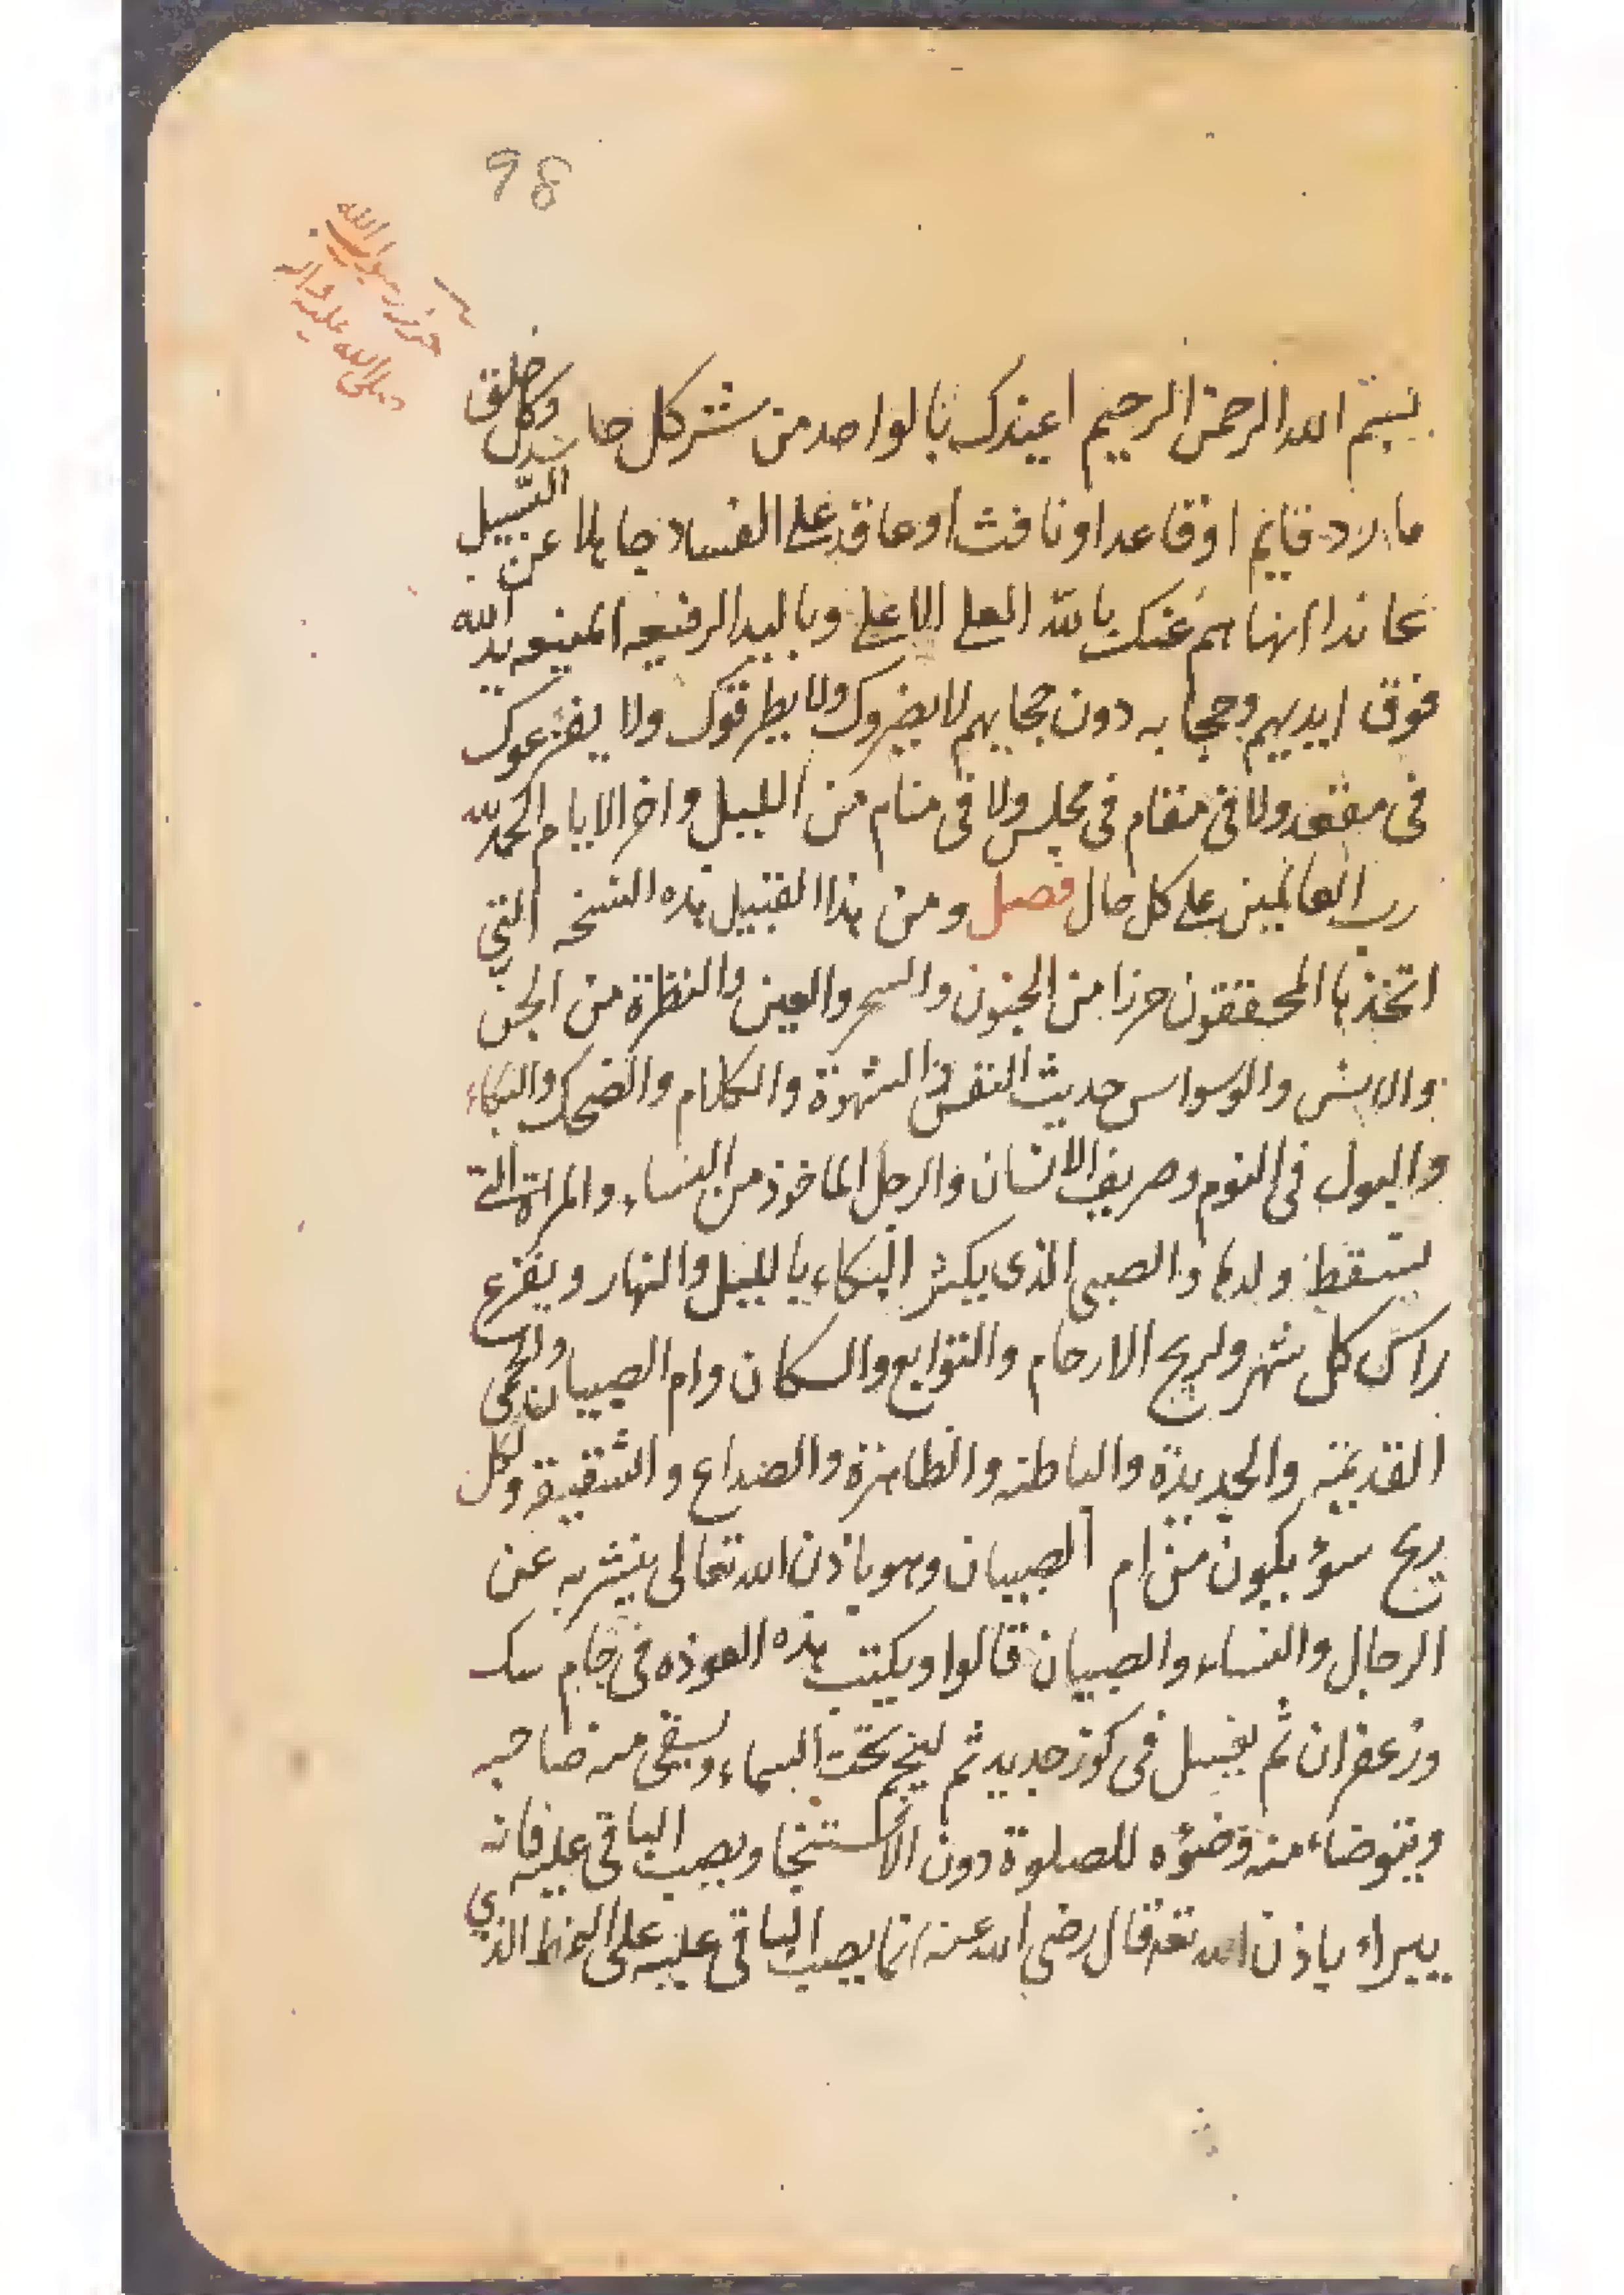 98
حرز رسول الله
صلى الله عليه واله
بسم الله الرحمن الرحيم اعيذك بالواحد من شر كل حاسد وكل خلق
مارد قايم او قاعد او نافث او عاقد على الفساد جاهلا عن السبيل
عاندا انهاهم عنك بالله العلي الاعلى وباليد الرفيعه المنيعه يد الله
فوق ايديهم وحجابه دون حجابهم لا يضروك ولا يطرقوك ولا يفزعوك
فى مقعد ولا فى مقام فى مجلس ولا فى منام من الليل واخر الايام الحمد لله
رب العالمين على كل حال فصل ومن هذا القبيل هذه النسخه التي
اتخذها المحققون حرزا من الجنون والسحر والعين والنظرة من الجن
والانس والوسواس حديث النفس فى الشهوة والكلام والضحك والبكاء
والبول فى النوم وصريف الانسان والرجل الماخوذ من النساء والمراة التى
يسقط ولدها والصبي الذى يكثر البكاء بالليل والنهار ويفزع
راس كل شهر ولريح الارحام والتوابع والسكان وام الصبيان والحمى
القديمة والجديدة والباطنه والظاهرة والصداع والشقيقة ولكل
ريح سوء يكون من ام الصبيان وهو باذن الله تعالى ينشر به عن
الرجال والنساء والصبيان قالوا ويكتب هذه العوذه فى جام بمسك
وزعفران ثم يغسل فى كوز جديد ثم ينجم تحت السماء ويسقى منه صاحبه
ويتوضاء منه وضؤه للصلوة دون الاستنجا ويصب الباقى عليه فانه
يبراء باذن الله تعه قال رضي الله عنه انما يصب الباقى عليه على الذي